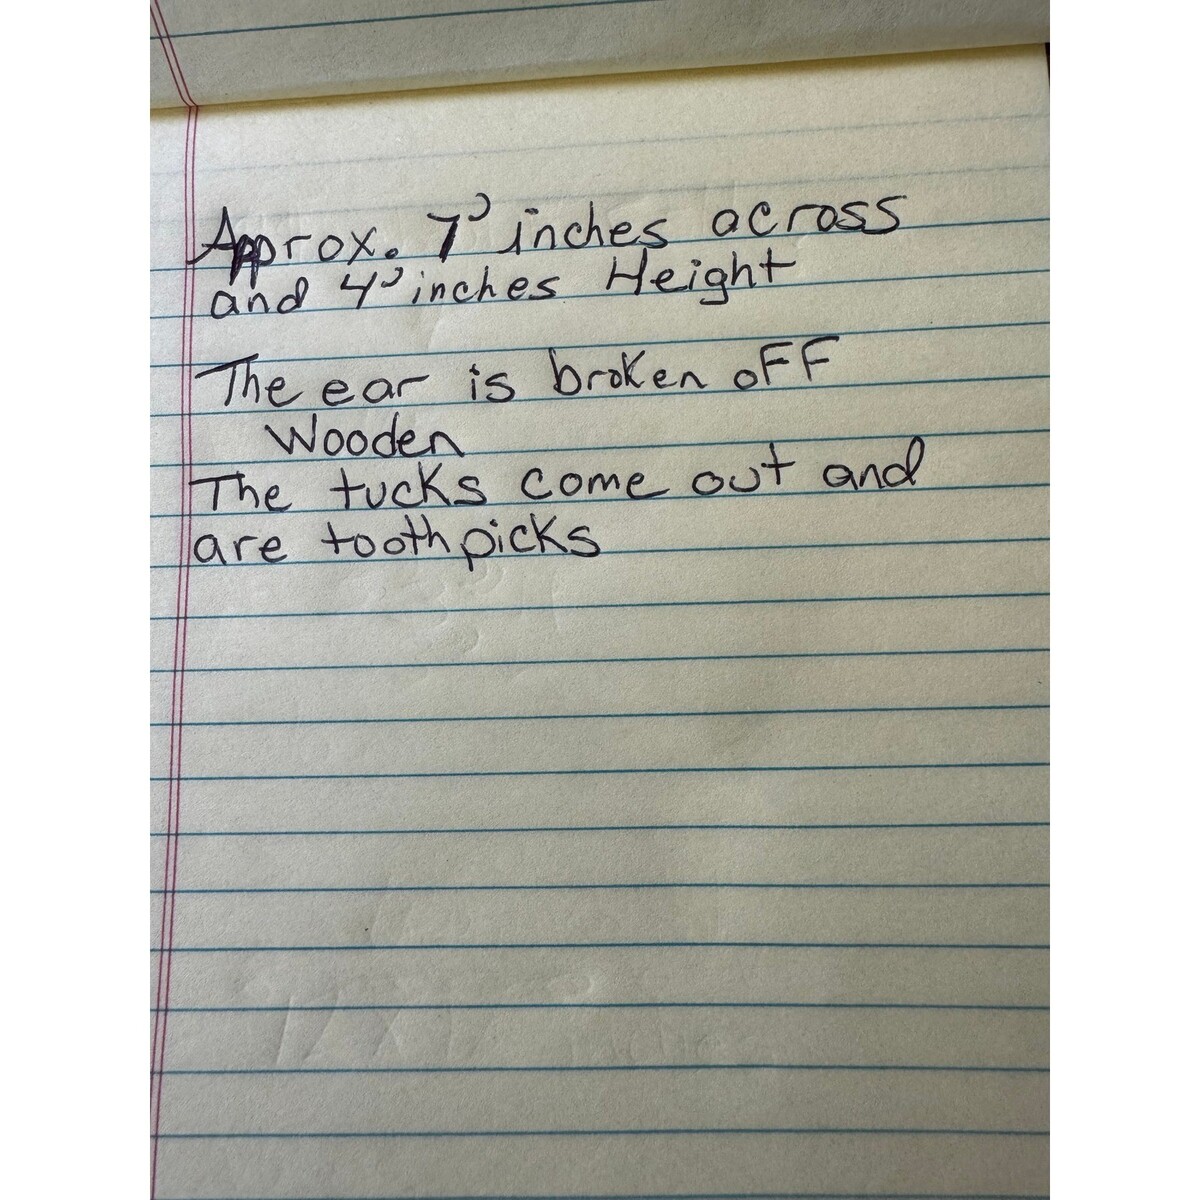 Approx. 7" inches across
and 4" inches Height
The ear is broken off
Wooden
The tucks come out and
are toothpicks